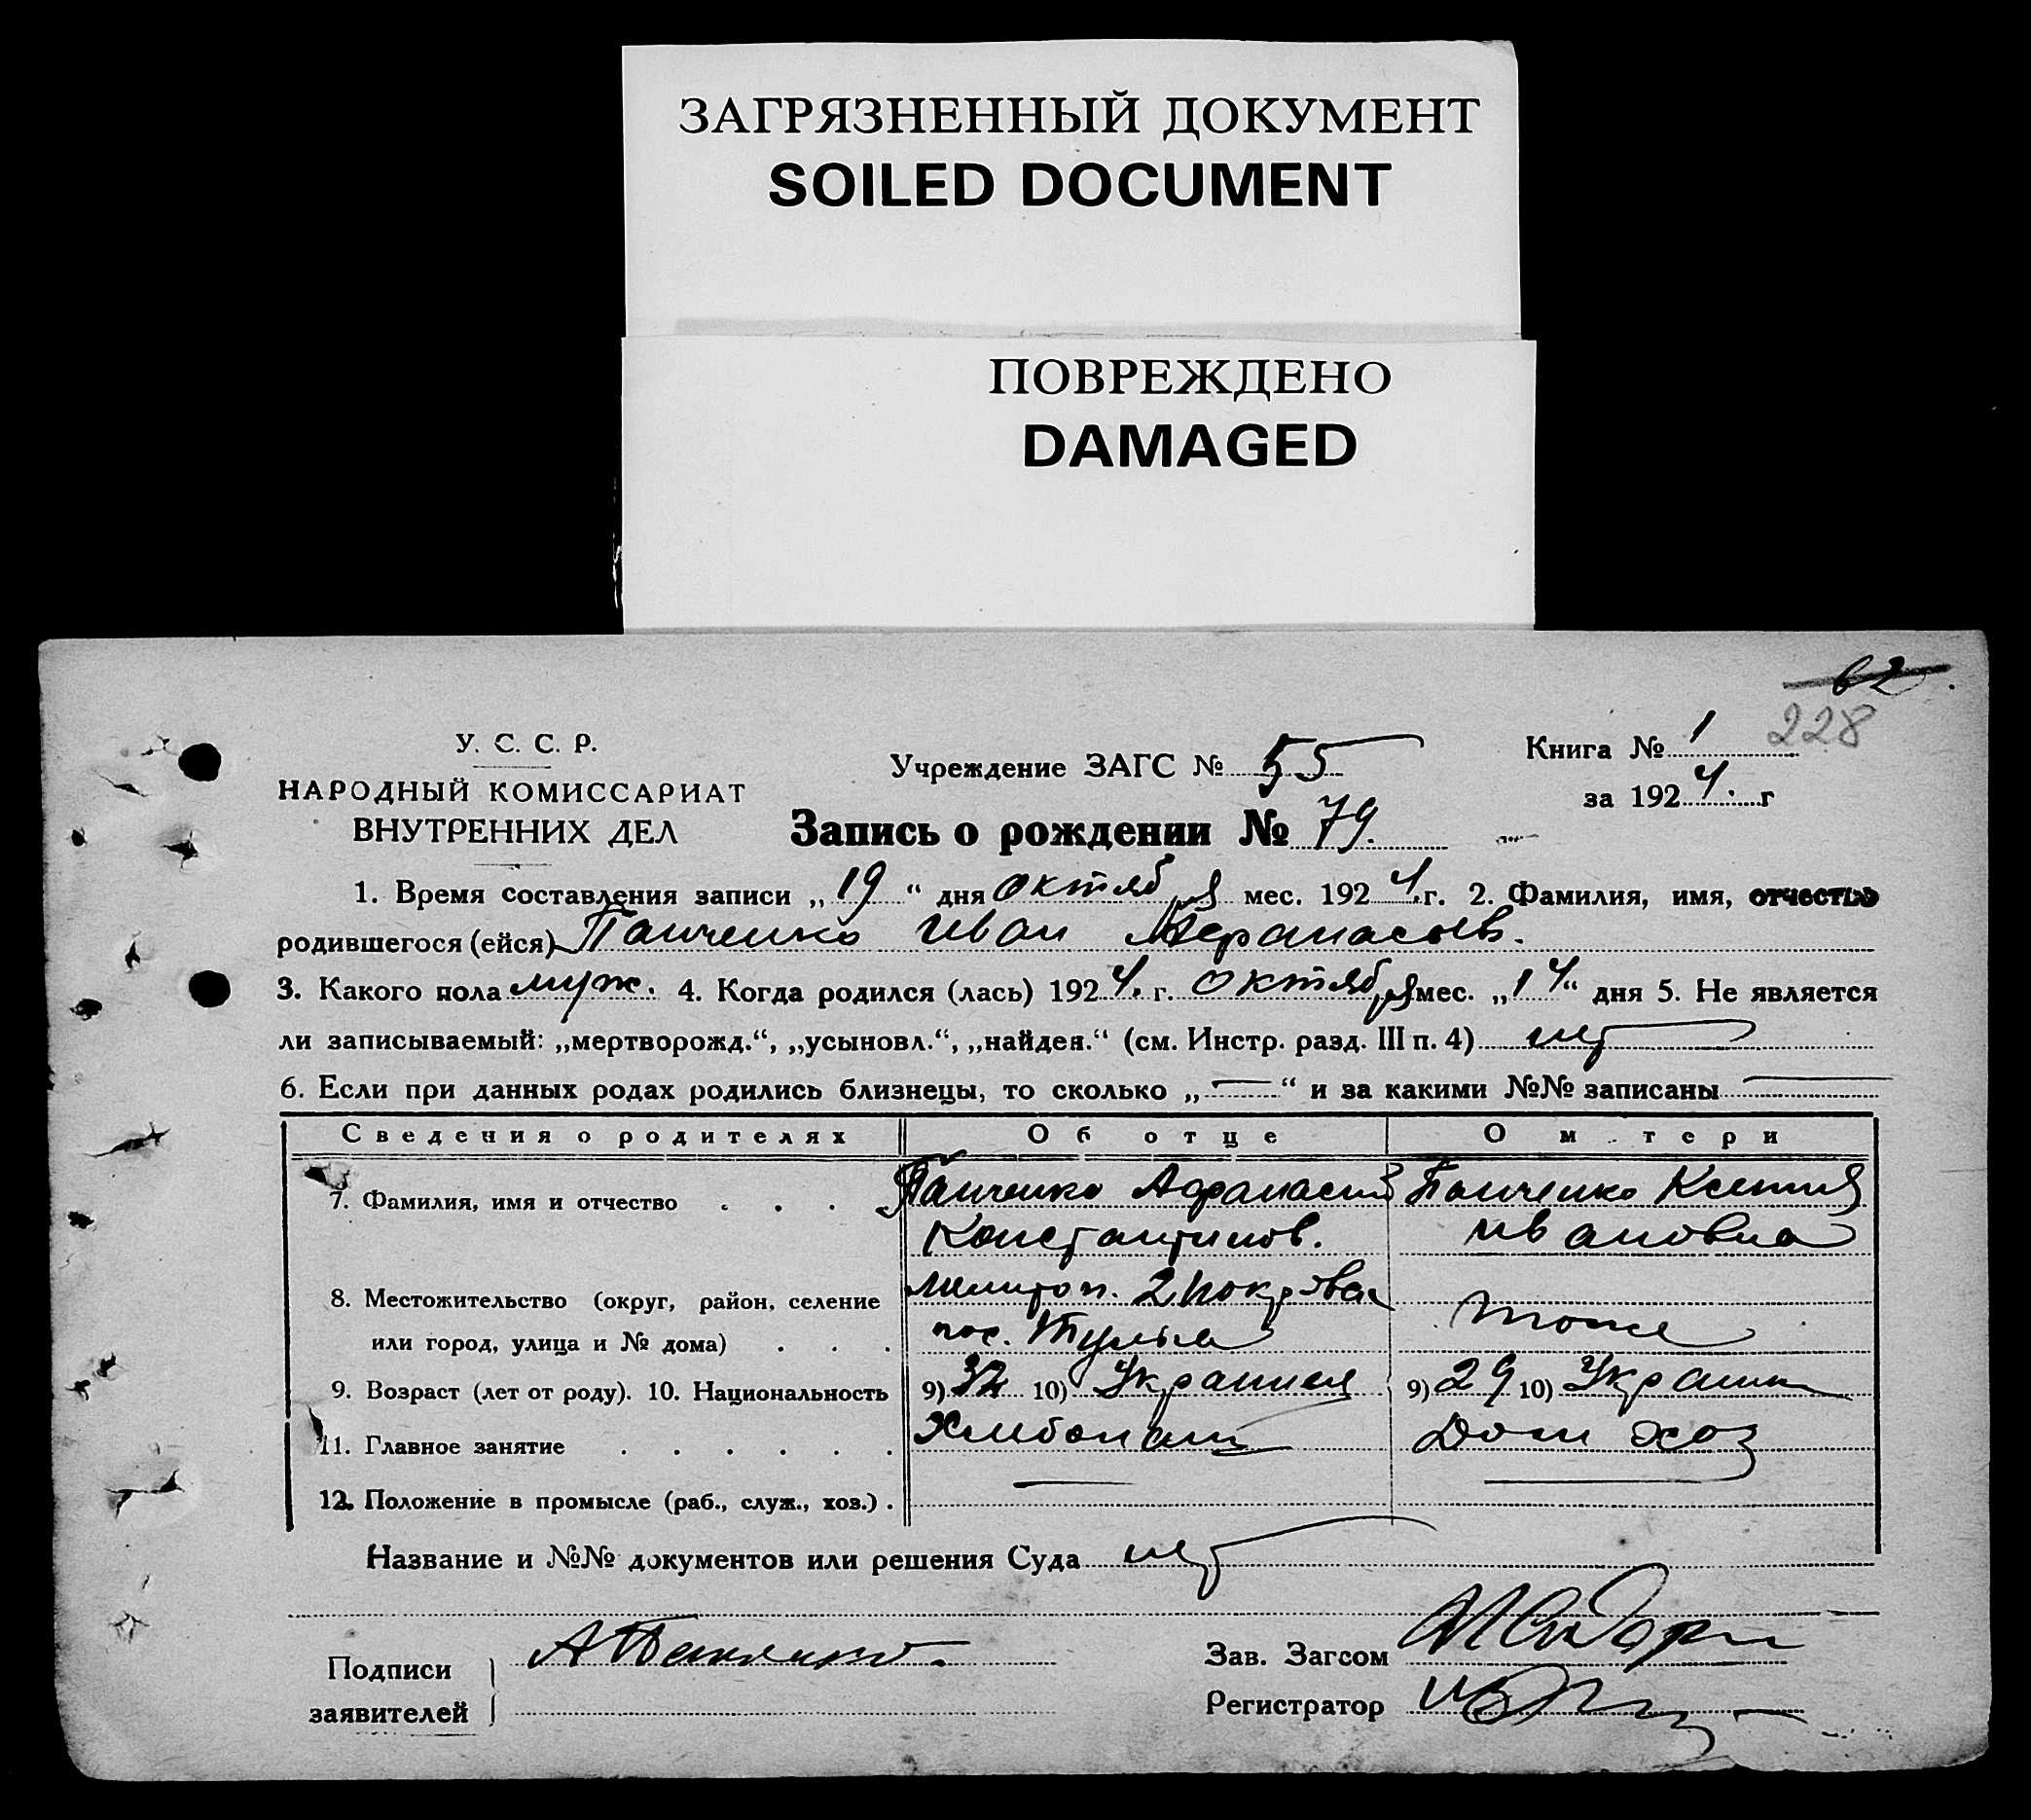 ЗАГРЯЗНЕННЫЙ ДОКУМЕНТ
SOILED DOCUMENT
ПОВРЕЖДЕНО
DAMAGED
62
228
У. С. С. Р.
НАРОДНЫЙ КОМИССАРИАТ
ВНУТРЕННИХ ДЕЛ
Учреждение ЗАГС № 55
Книга № 1
за 1924. г
Запись о рождении № 79.
1. Время составления записи „19“ дня октября мес. 1924.г. 2. Фамилия, имя, отчество
родившегося (ейся) Панченко Иван Афранасьев.
3. Какого пола муж. 4. Когда родился (лась) 1924. г. октября мес. „14“ дня 5. Не является
ли записываемый: „мертворожд.“, „усыновл.“, „найден.“ (см. Инстр. разд. III п. 4) нет
6. Если при данных родах родились близнецы, то сколько „—“ и за какими №№ записаны —
Сведения о родителях Об отце О м тери
7. Фамилия, имя и отчество . . . Панченко Афранасий Панченко Ксения
Константинов. Ивановна
8. Местожительство (округ, район, селение Мелитоп. 2 Покровка
или город, улица и № дома) . . . пос. тоже
9. Возраст (лет от роду). 10. Национальность 9) 32 10) Украинец 9) 29 10) Украин
11. Главное занятие . . . . . . Хлебопаш Дом хоз
12. Положение в промысле (раб., служ., хоз.) . — —
Название и №№ документов или решения Суда нет
Подписи
заявителей
А Панченко.
Зав. Загсом
Регистратор